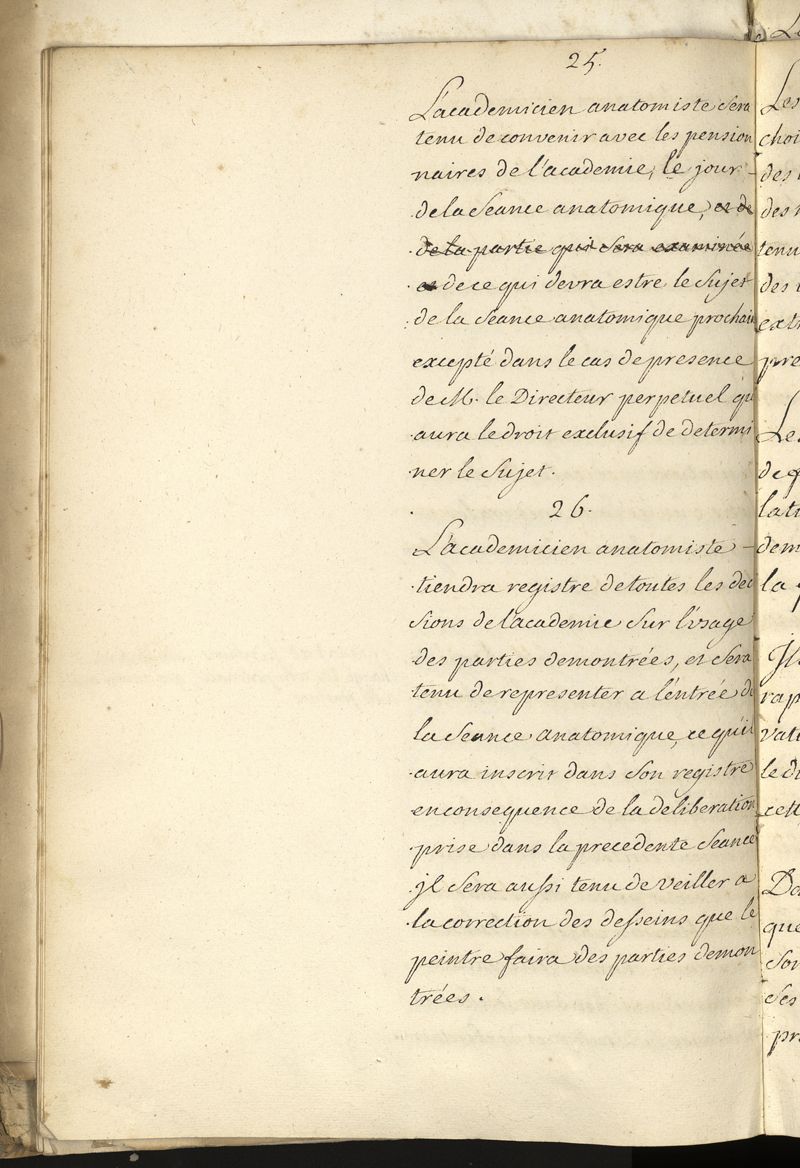 25.
L'academicien anatomiste sera
tenu de convenir avec les pension
naires de l'academie, le jour
de la Seance anatomique, et de
de la partie qui sera examinée
et de ce qui devra estre le Sujet
de la Seance anatomique prochain
excepté dans le cas de presence
de M. le Directeur perpetuel qu
aura le droit exclusif de determi
ner le Sujet.
26.
L'academicien anatomiste
tiendra registre de toutes les deci
sions de l'academie Sur l'usage
des parties demontrées, et Sera
tenu de representer a l'entrée de
la Seance anatomique, ce qu'il
aura inscrit dans Son registre
en consequence de la deliberation
prise dans la precedente Seance
jl Sera aussi tenu de veiller a
la correction des desseins que le
peintre faira des parties demon
trées.
Les
choi
des
des
tenu
des
extr
pre
Les
de q
latu
dem
la
Il
rap
vati
le di
cett
Da
que
Son
Ses
pr